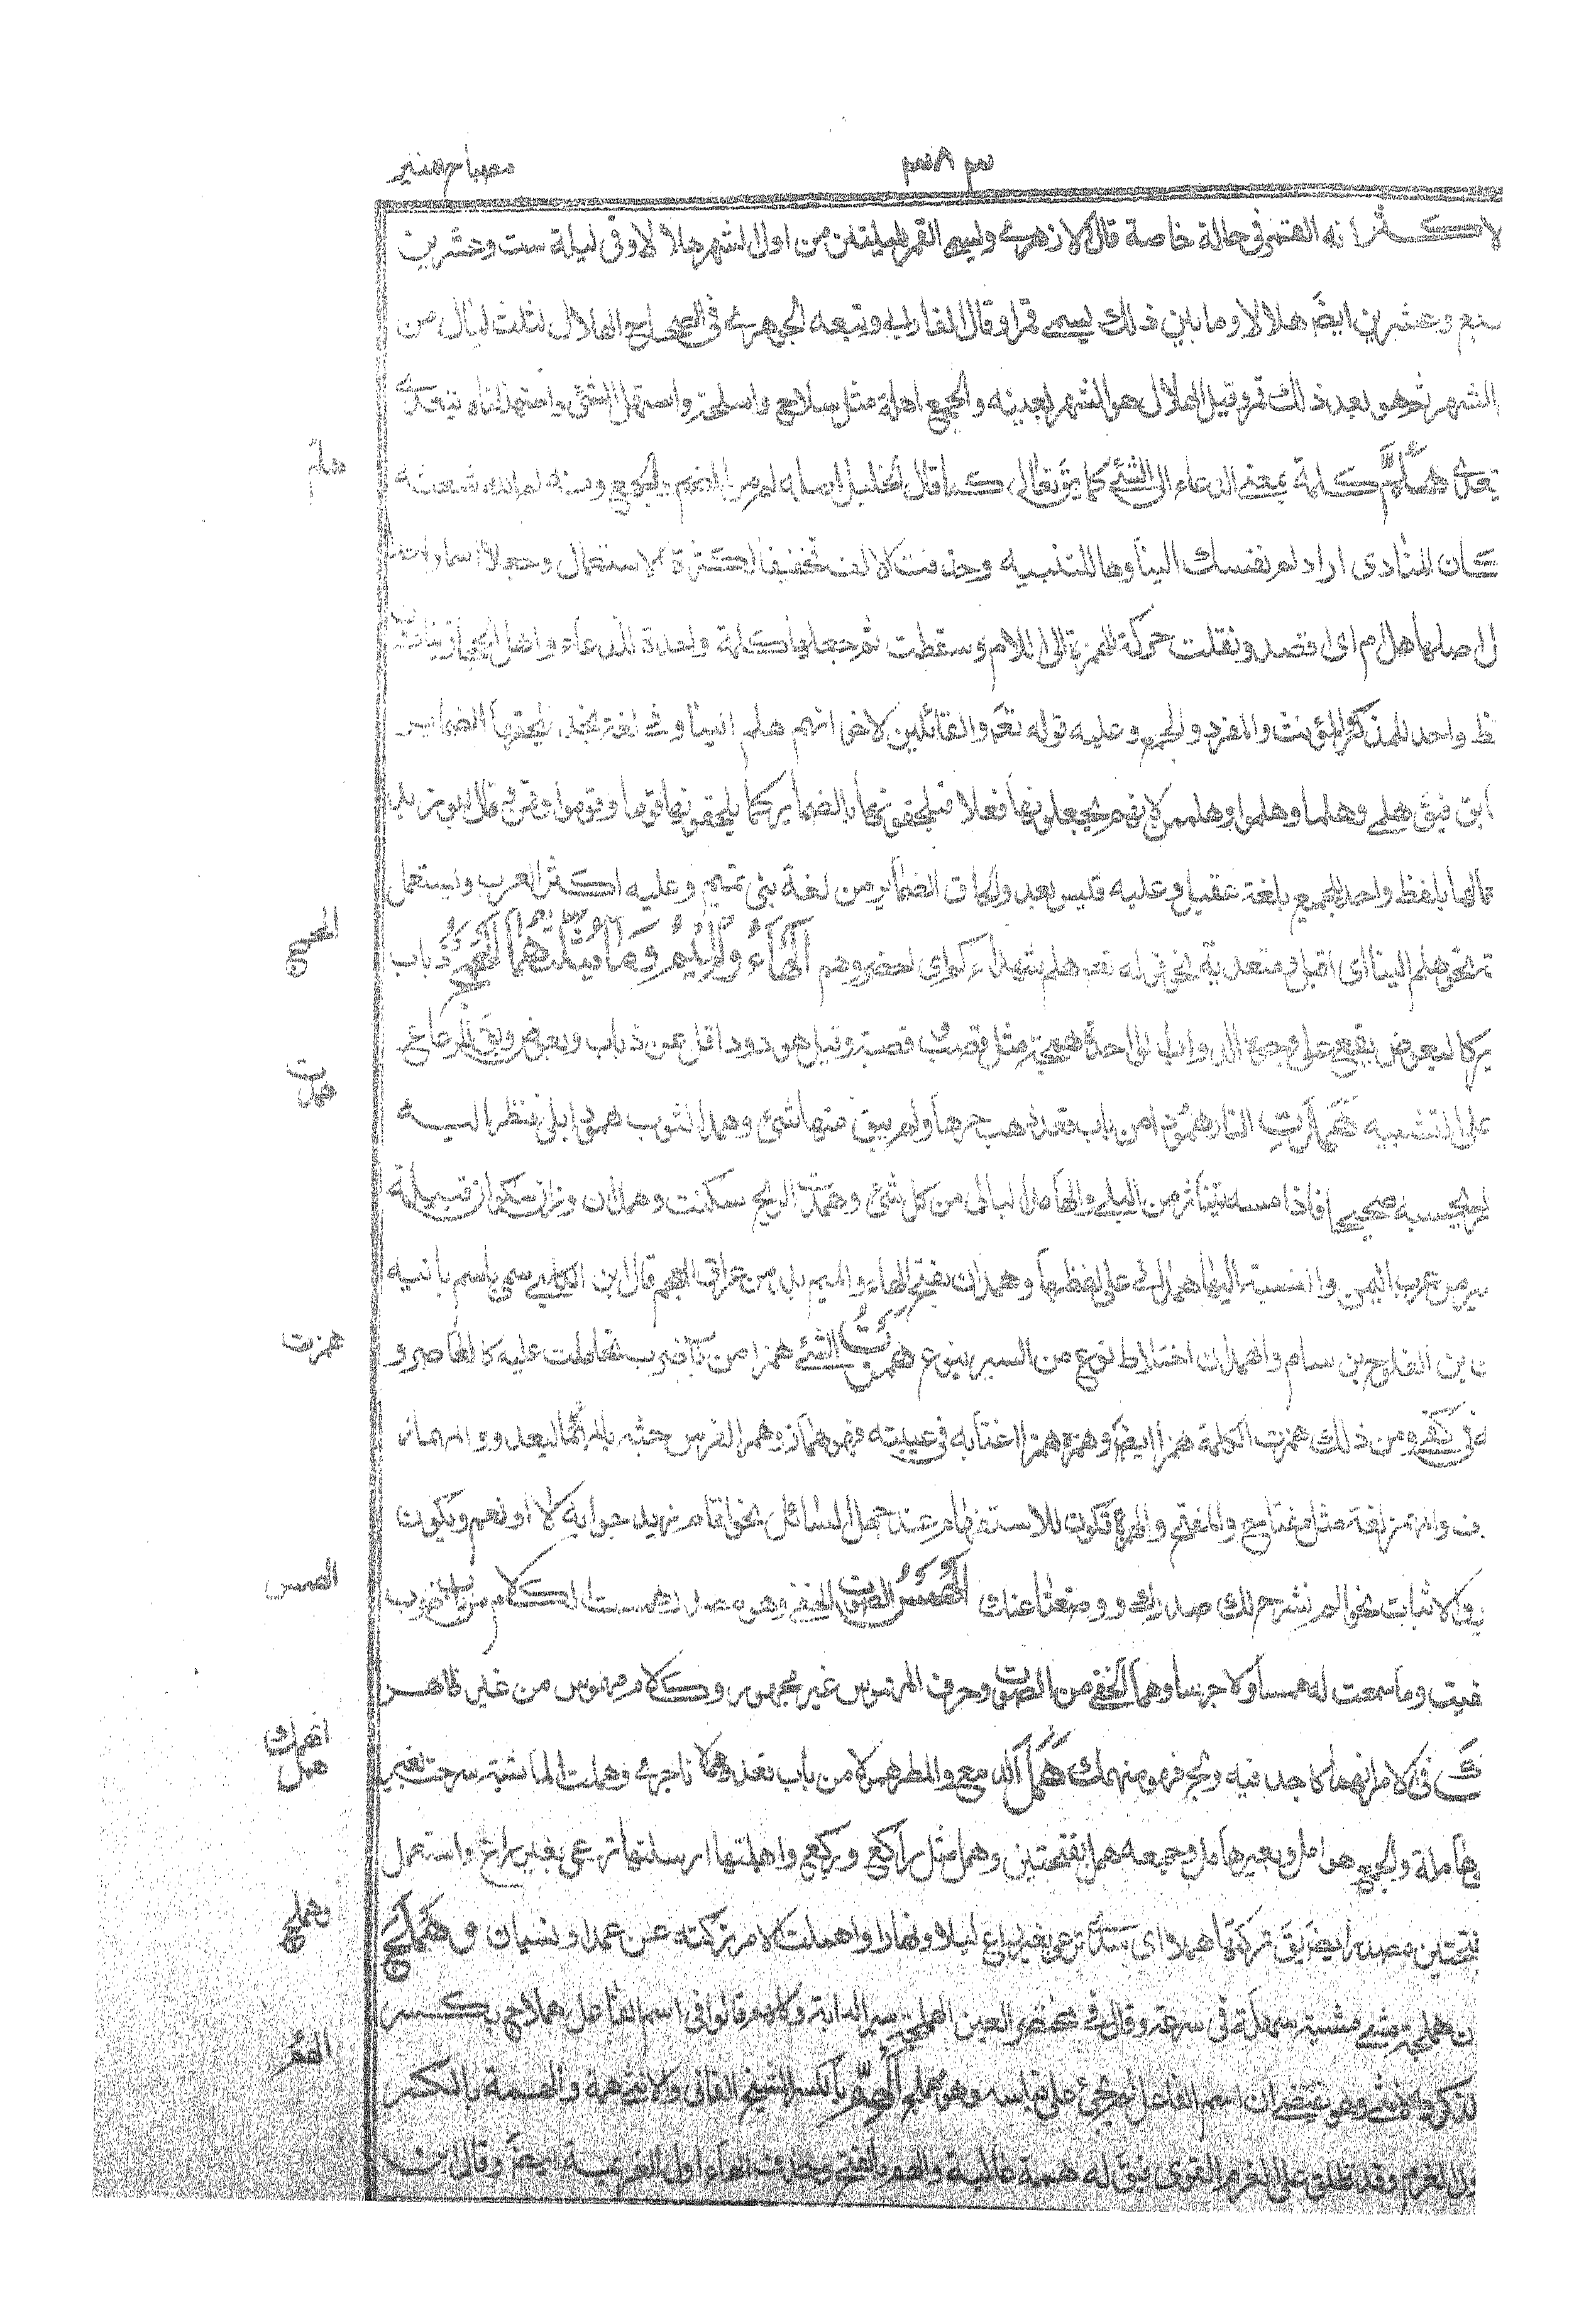 مصباح منير
٣٨٣
لاكثر انه القمر في حالة خاصة قال الازهري ويسمى القمر لليلتين من اول الشهر هلالا وفي ليلة ست وعشرين
سبع وعشرين ايضَ هلالا وما بين ذلك يسمى قمرا وقال الفارابي وتبعه الجوهري في الصحاح الهلال لثلث ليال من
الشهر ثم هو بعد ذلك قمر وقيل الهلال هو الشهر بعينه والجمع اهلة مثل سلاح واسلحة واستهل الشئ
هلم
هَلُمَّ كلمة بمعنى الدعاء الى الشئ كما يقَ تعالى كذا قال الخليل اصله لم من الضم والجمع ومنه لم الله شعثه
كان المنادى اراد لم نفسك الينا وها للتنبيه وحذفت الالف تخفيفا لكثرة الاستعمال وجعلا اسما
اصلها هل ام اى اقصد ونقلت حركة الهمزة الى اللام وسقطت ثم جعلها كلمة واحدة للدعاء واهل الحجاز
ظ واحد للمذكر والمؤنث والمفرد والجمع وعليه قوله تعَ والقائلين لاخوانهم هلم الينا وفي لغة نجد يلحقها الضماير
ابق فيقَ هلمي وهلما وهلموا وهلممن لانهم يجعلونها فعلا فيلحقونها الضماير كما يلحقونها قوما وقوموا وقمن قال ابو زيد
بلفظ واحد للجمع بلغة عقيل وعليه قيس بعد والحاق الضماير من لغة بني تميم وعليه اكثر العرب ويستعمل
المهمج
نحو هلم الينا اى اقبل ومتعدية نحو قوله تعَ هلم شهداءكم اى احضروهم اَلْهَاءُ وَالْمِيْمُ وَمَا يُثَلِّثُهُمَا الهمج ذباب
كالبعوض يقع على وجوه الدواب الواحدة همجة مثل قصب قصبة وقيل هو دود عن ذباب وبعوض ويقَ للرعاع
همدت
على التشبيه هَمَدَتِ النار همودا من باب قعد ذهب حرها ولم يبق منها شئ وهمد الثوب همودا بلي فينظر اليه
يحسبه صحيحا فاذا مسه تناثر من البلى والهامد البالي من كل شئ وهمدت الريح سكنت وهمدان وزان سكران قبيلة
حمير من عرب اليمن والنسبة اليها همداني على لفظها وهمذان بفتح الهاء والميم بلد من عراق العجم قال ابن الكلبي سمي باسم بانيه
همزت
بن الفلوج بن سام والهمذان اختلاط نوع من السير بنوع همزت الشئ همزا من باب ضرب تحاملت عليه كالعاصر و
في كفي ومن ذلك همزت الكلمة همزا ايضَ وهمزه همزا اغتابه في غيبته فهو هماز وهمز الفرس حثه بالمهماز ليعدو
والمهمز لغة مثل مفتاح والمفتح والهمزة تكون للاستفهام عند جهل السائل نحو اقام زيد جوابه لا او نعم ويكون
الهمس
والاثبات نحو الم نشرح لك صدرك ووضعنا عنك اَلْهَمْسُ الصوت الخفي وهو مصدر همست الكلام من باب ضرب
وما سمعت له همسا ولا جرسا وهما الخفي من الصوت وحرف المهموس غير مجهور وكلام مهموس من غير ظاهر
انهمك
همل
في الامر انهماكا جد فيه ولج فهو منهمك هَمَلَ الدمع والمطر همولا من باب قعد وهملانا جرى وهملت الماشية سرحت بغير
هاملة والجمع هوامل وبعير هامل وجمعه همل بفتحتين وهمل مثل راكع وركع واهملتها ارسلتها ترعى بغير راع واستعمل
وهملج
بفتحتين مصدرا ايضَ يقَ تركتها هملا اى سدى ترعى بغير راع ليلا ونهارا واهملت الامر تركته عن عمد او نسيان هَمْلَجَ
هملجة مشى مشية سهلة في سرعة وقال في مختصر العين الهملجة حسن سير الدابة وكلهم قالوا في اسم الفاعل هملاج بكسر
الهم
للذكر والانثى وهو يقتضي ان اسم الفاعل لم يجئ على قياسه وهو مهملج اَلْهِمُّ بالكسر الشيخ الفاني والانثى همة والهمة بالكسر
العزم وقد تطلق على العزم القوى فيقَ له همة عالية والهم بالفتح وحذف الهاء اول العزيمة ايضَ وقال ابن